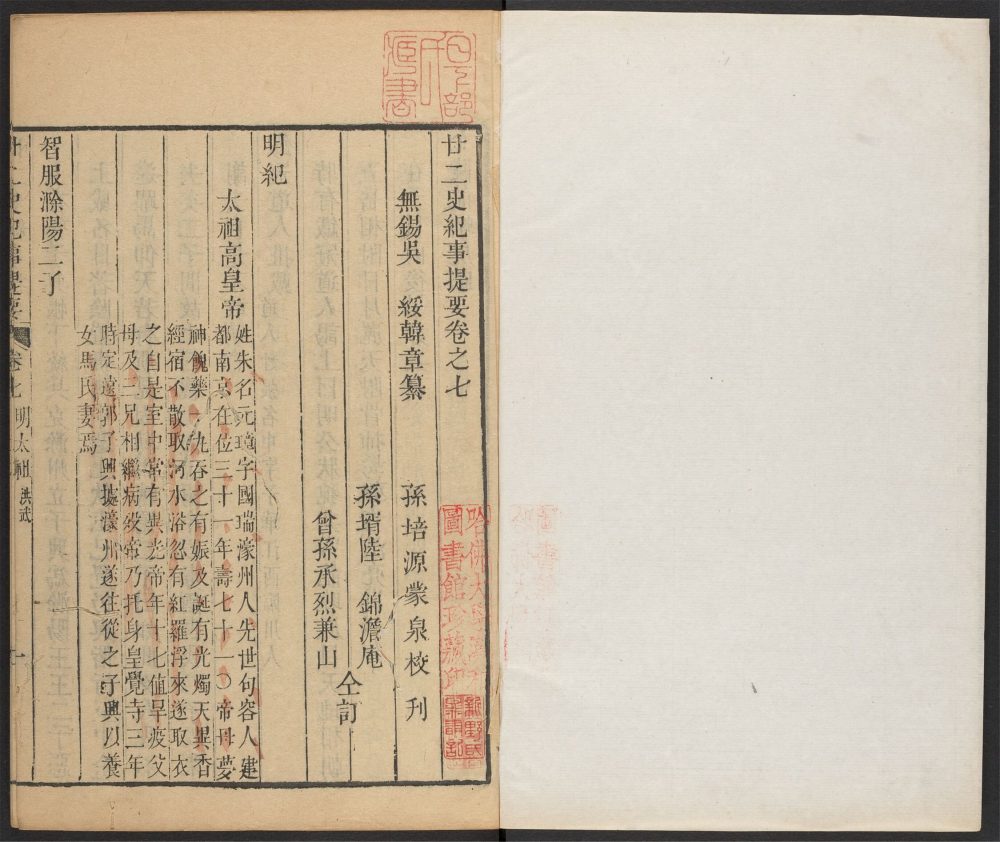 廿二史紀事提要卷之七
無錫吳 綏韓章纂 孫培源蒙泉校刊
孫壻陸 錦澹庵
曾孫承烈兼山
仝訂
明紀
太祖高皇帝
姓朱名元璋字國瑞濠州人先世句容人建
都南京在位三十一年壽七十一〇帝母夢
神餽藥一丸吞之有娠及誕有光燭天異香
經宿不散取河水浴忽有紅羅浮來遂取衣
之自是室中常有異光帝年十七值旱疫父
母及二兄相繼病歿帝乃托身皇覺寺三年
時定遠郭子興據濠州遂往從之子興以養
女馬氏妻焉
智服滁陽二子
廿二史紀事提要 卷七 明太祖 洪武 一
哈佛大學漢和
圖書館珍藏印